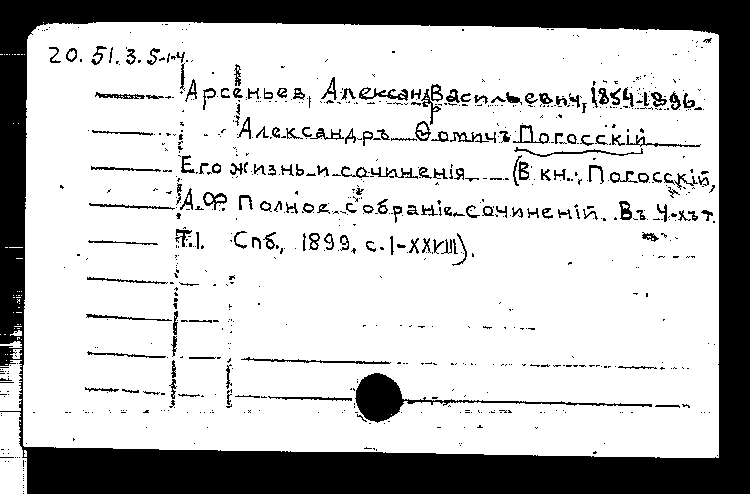 20. 51. 3. 5-1-4.
Арсеньев, Александр Васильевич, 1854-1896.
Александръ Ѳомичъ Погосскій.
Его жизнь и сочиненія. (В кн.: Погосскій,
А.Ѳ. Полное собраніе сочиненій. Въ 4-хъ т.
Т.I. Спб., 1899, с. I-XXVIII).